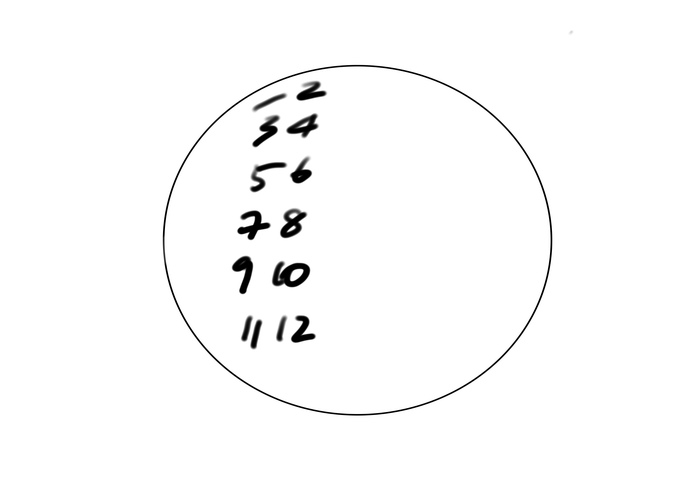 — 2
3 4
5 6
7 8
9 10
11 12